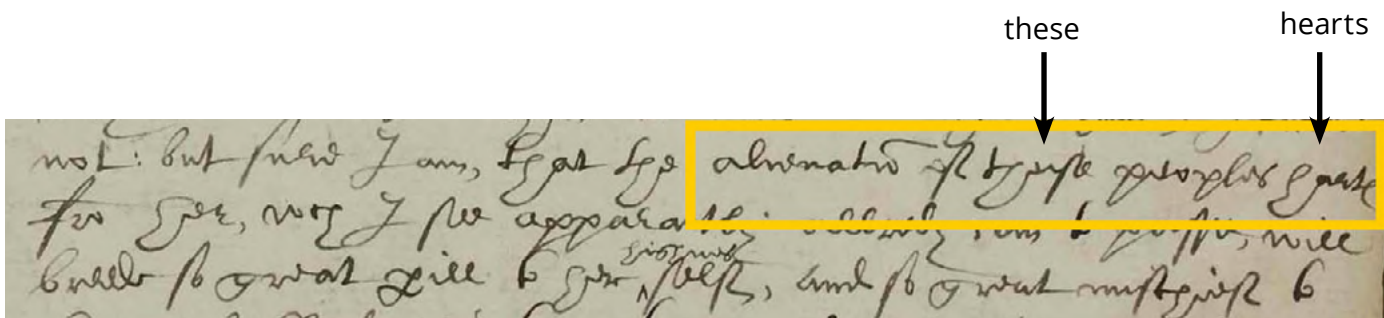 these hearts
not: but sure I am, that the alienatiō of theise peoples harts
frō her, wch I see apparantly allredy, will
breede so great perill to her highnes self, and so great mischief to